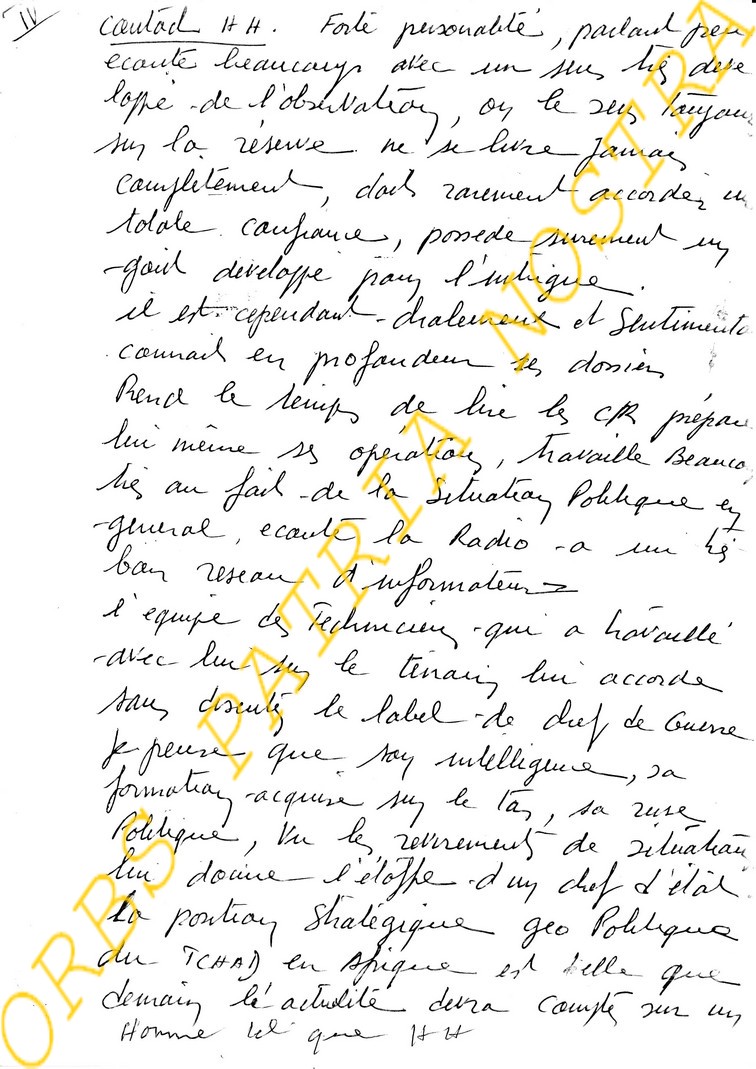 IV
contact HH. Forte personalité, parlant peu
ecoute beaucoup avec un sens très deve
loppé de l'observation, on le sens toujours
sur la réserve ne se livre Jamais
complètement, doit rarement accorder un
totale confiance, possede surement un
goût developpé pour l'intrigue.
il est cependant chaleureux et Sentimenta
connait en profondeur ses dossiers
Prend le temps de lire les C/R prépare
lui même ses opérations, travaille Beauco
très au fait de la Situation Politique en
general, ecoute la Radio a un très
bon reseau d'informateurs
l'équipe des Techniciens qui a travaillé
avec lui sur le terrain lui accorde
sans discuté le label de chef de Guerre
Je pense que son intelligence, sa
formation acquise sur le tas, sa ruse
Politique, Vu les revirements de situation
lui donne l'étoffe d'un chef d'état
La position Stratégique geo Politique
du TCHAD en Afrique est telle que
demain l'actualité devra compté sur un
Homme tel que HH
ORBS PATRIA NOSTRA